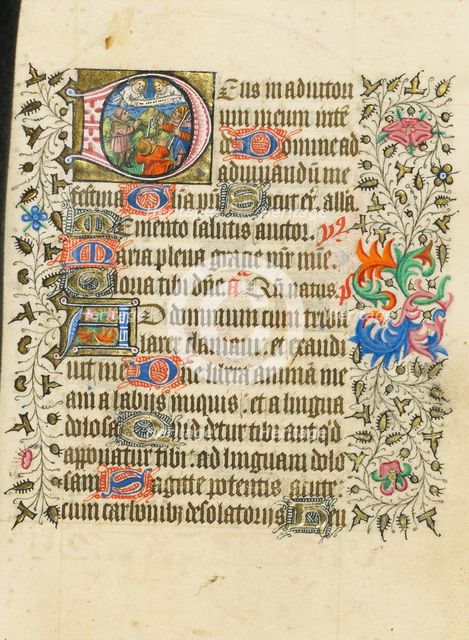 Deus in adiutori
um meum inte
de Domine ad
adiuuandū me
festina Glia pri Sicut er. alla
Memento salutis auctor.
Maria plena gracie mr̄ mie.
Gloria tibi dn̄e. a Qn̄ natus. ps
Ad dominum cum tribu
larer clamaui: et exaud
uit me Domine libera animam me
am a labijs iniquis: et a lingua
dolosa Quid detur tibi aut qd
apponatur tibi: ad linguam dolo
sam Sagitte potentis acute
cum carbonibꝫ desolatorijs Heu